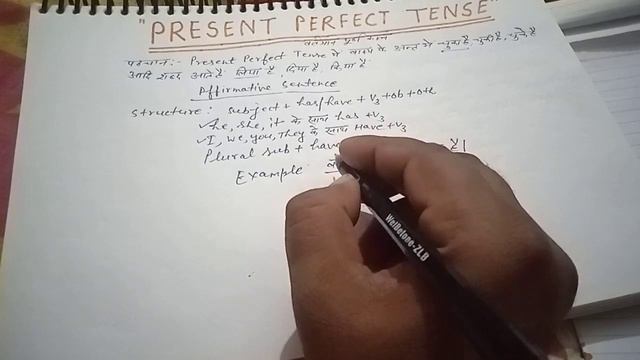 "PRESENT PERFECT TENSE"
वर्तमान पूर्ण काल
पहचान:- Present Perfect Tense में वाक्य के अन्त में चुका है, चुकी है, चुके है
आदि शब्द आते है लिया है दिया है किया है
Affirmative Sentence
Structure: Subject + has/have + V3 + ob + oth
✓ he, she, it के साथ has + V3
✓ I, we, you, They के साथ Have + V3
Plural sub + have
Example
WelDetone-ZLB